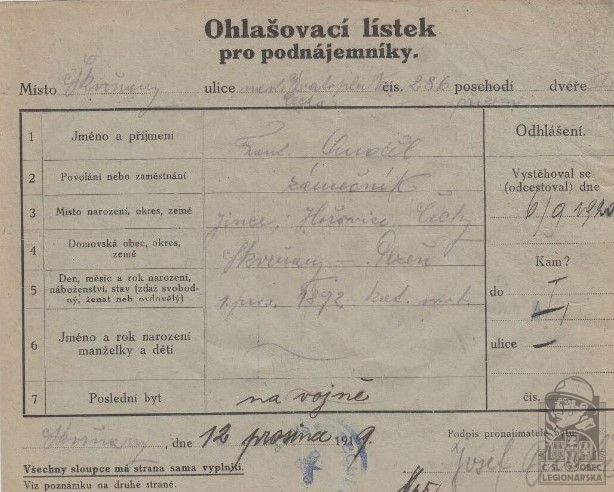 Ohlašovací lístek
pro podnájemníky.
Místo Škvrňany ulice čís. 286 poschodí dveře
přízemí
1 Jméno a příjmení Frant. Anděl
2 Povolání nebo zaměstnání zámečník
3 Místo narození, okres, země Jince, Hořovice, Čechy
4 Domovská obec, okres, země Škvrňany – Plzeň
5 Den, měsíc a rok narození, náboženství, stav (zdaž svobodný, ženat neb ovdovělý) 1892 kat.
6 Jméno a rok narození manželky a dětí
7 Poslední byt na vojně
Odhlášení.
Vystěhoval se
(odcestoval) dne
6/9 1920
Kam?
do
ulice
čís.
Škvrňany, dne 12 prosince 1919.
Podpis pronajímatele bytu
Josef
Všechny sloupce má strana sama vyplniti.
Viz poznámku na druhé straně.
ČSLO
ČS. OBEC
LEGIONÁŘSKÁ